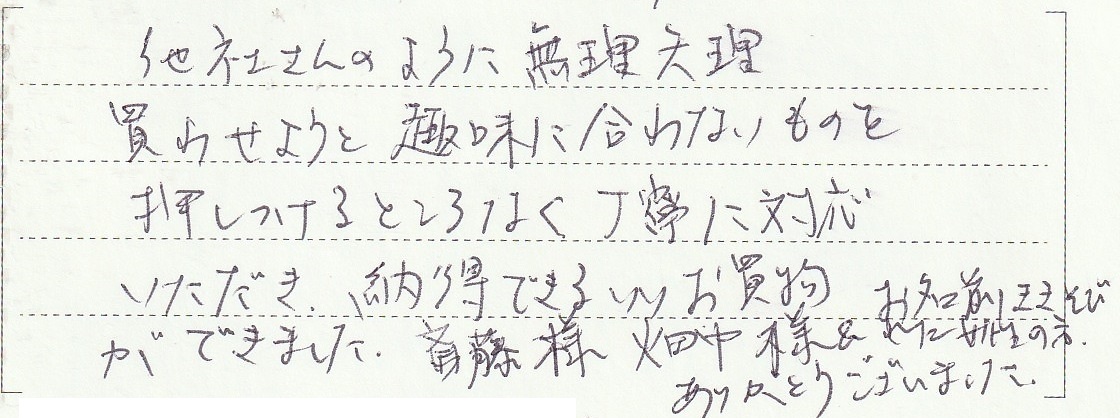 他社さんのように無理矢理
買わせようと趣味に合わないものを
押しつけるところなく丁寧に対応
いただき、納得できるいいお買物
ができました。首藤様 畑中様& お名前ききそび
れた女性の方。
ありがとうございました。